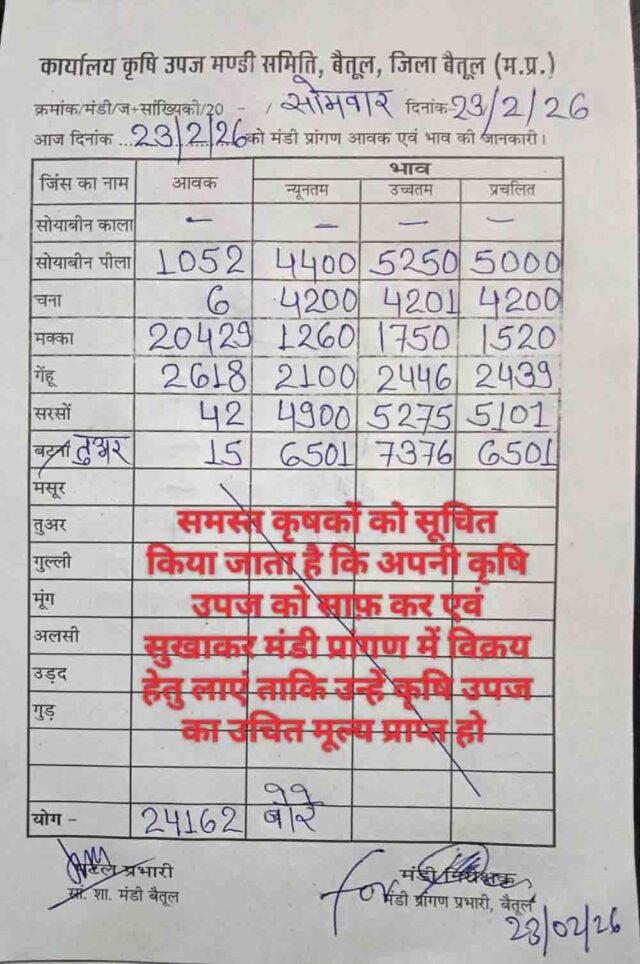 कार्यालय कृषि उपज मण्डी समिति, बैतूल, जिला बैतूल (म.प्र.)
क्रमांक/मंडी/ज+सांख्यिकी/20 - / सोमवार दिनांक 23/2/26
आज दिनांक ...23/2/26 को मंडी प्रांगण आवक एवं भाव की जानकारी।
जिंस का नाम आवक भाव
न्यूनतम उच्चतम प्रचलित
सोयाबीन काला - - - -
सोयाबीन पीला 1052 4400 5250 5000
चना 6 4200 4201 4200
मक्का 20429 1260 1750 1520
गेंहू 2618 2100 2446 2439
सरसों 42 4900 5275 5101
बटना तुअर 15 6501 7376 6501
मसूर
तुअर
गुल्ली
मूंग
अलसी
उड़द
गुड़
समस्त कृषकों को सूचित
किया जाता है कि अपनी कृषि
उपज को साफ़ कर एवं
सुखाकर मंडी प्रांगण में विक्रय
हेतु लाएं ताकि उन्हें कृषि उपज
का उचित मूल्य प्राप्त हो
योग - 24162 बोरे
प्रभारी
सां. शा. मंडी बैतूल
मंडी निरीक्षक
for मंडी प्रांगण प्रभारी, बैतूल
23/02/26